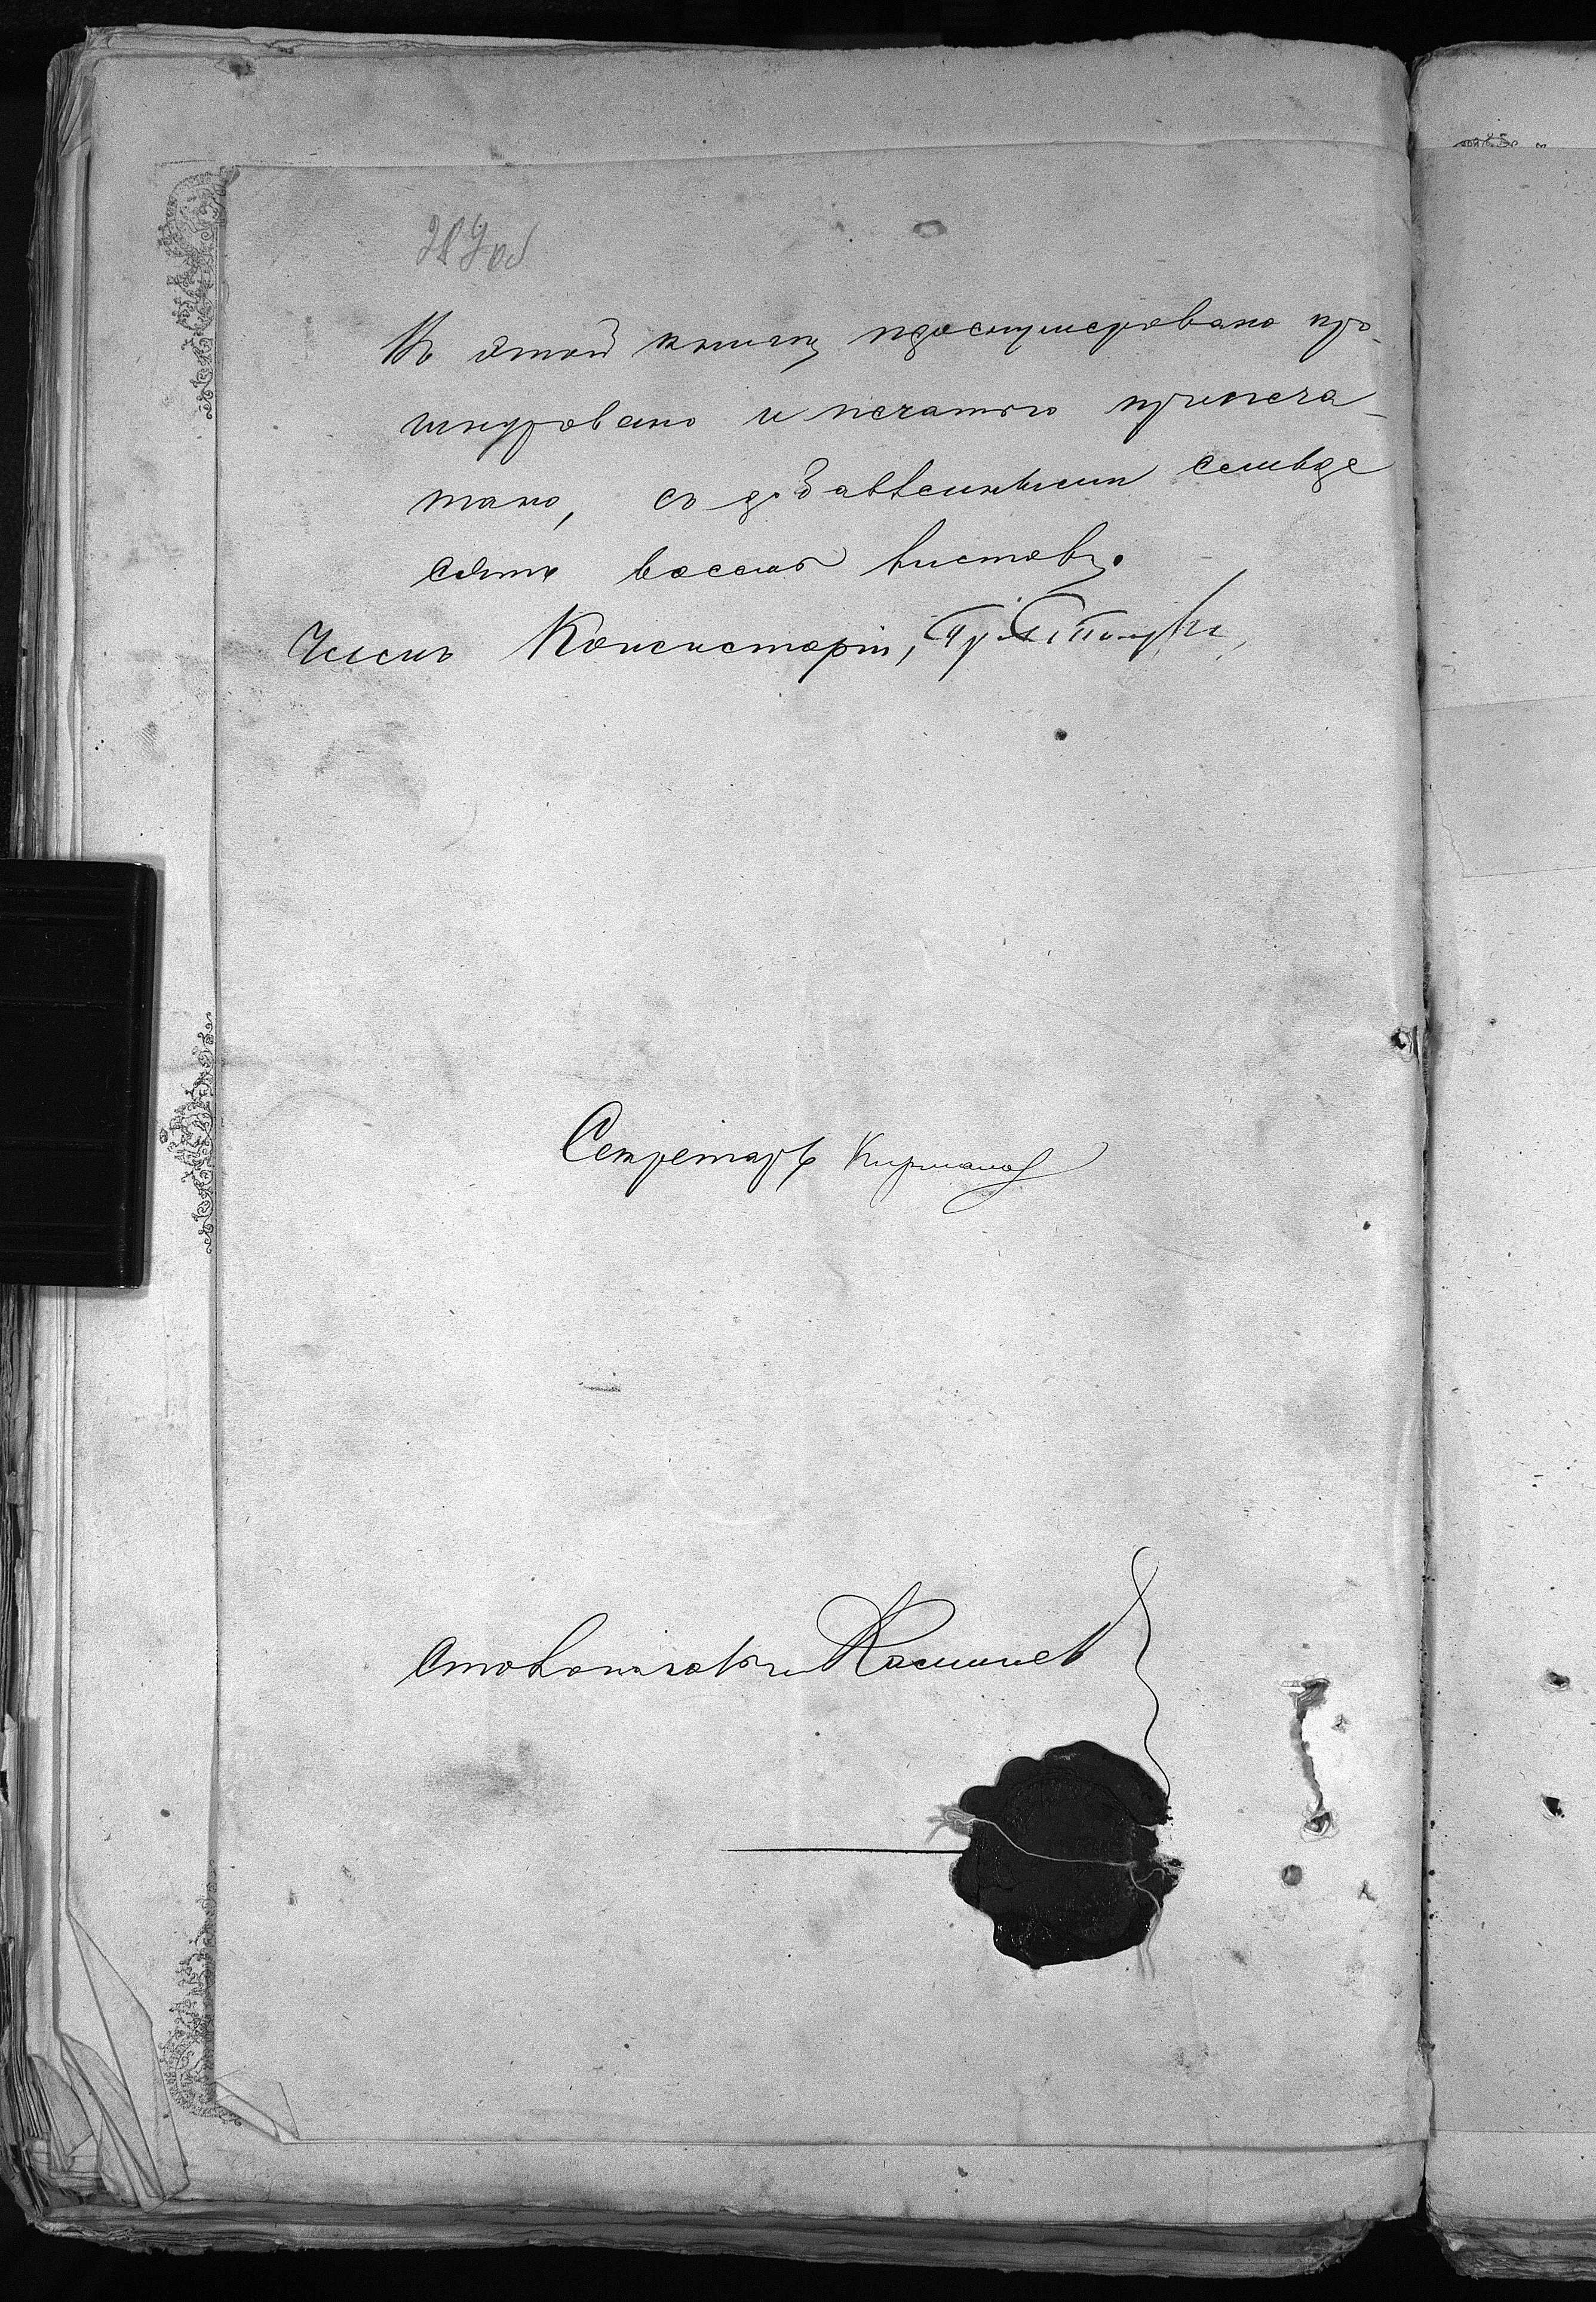 об
Въ этой книгѣ пронумеровано про-
шнуровано и печатью припеча-
тано, съ добавленными семьде
сятъ восемь листовъ.
Членъ Консисторіи,
Секретарь
Столоначальникъ